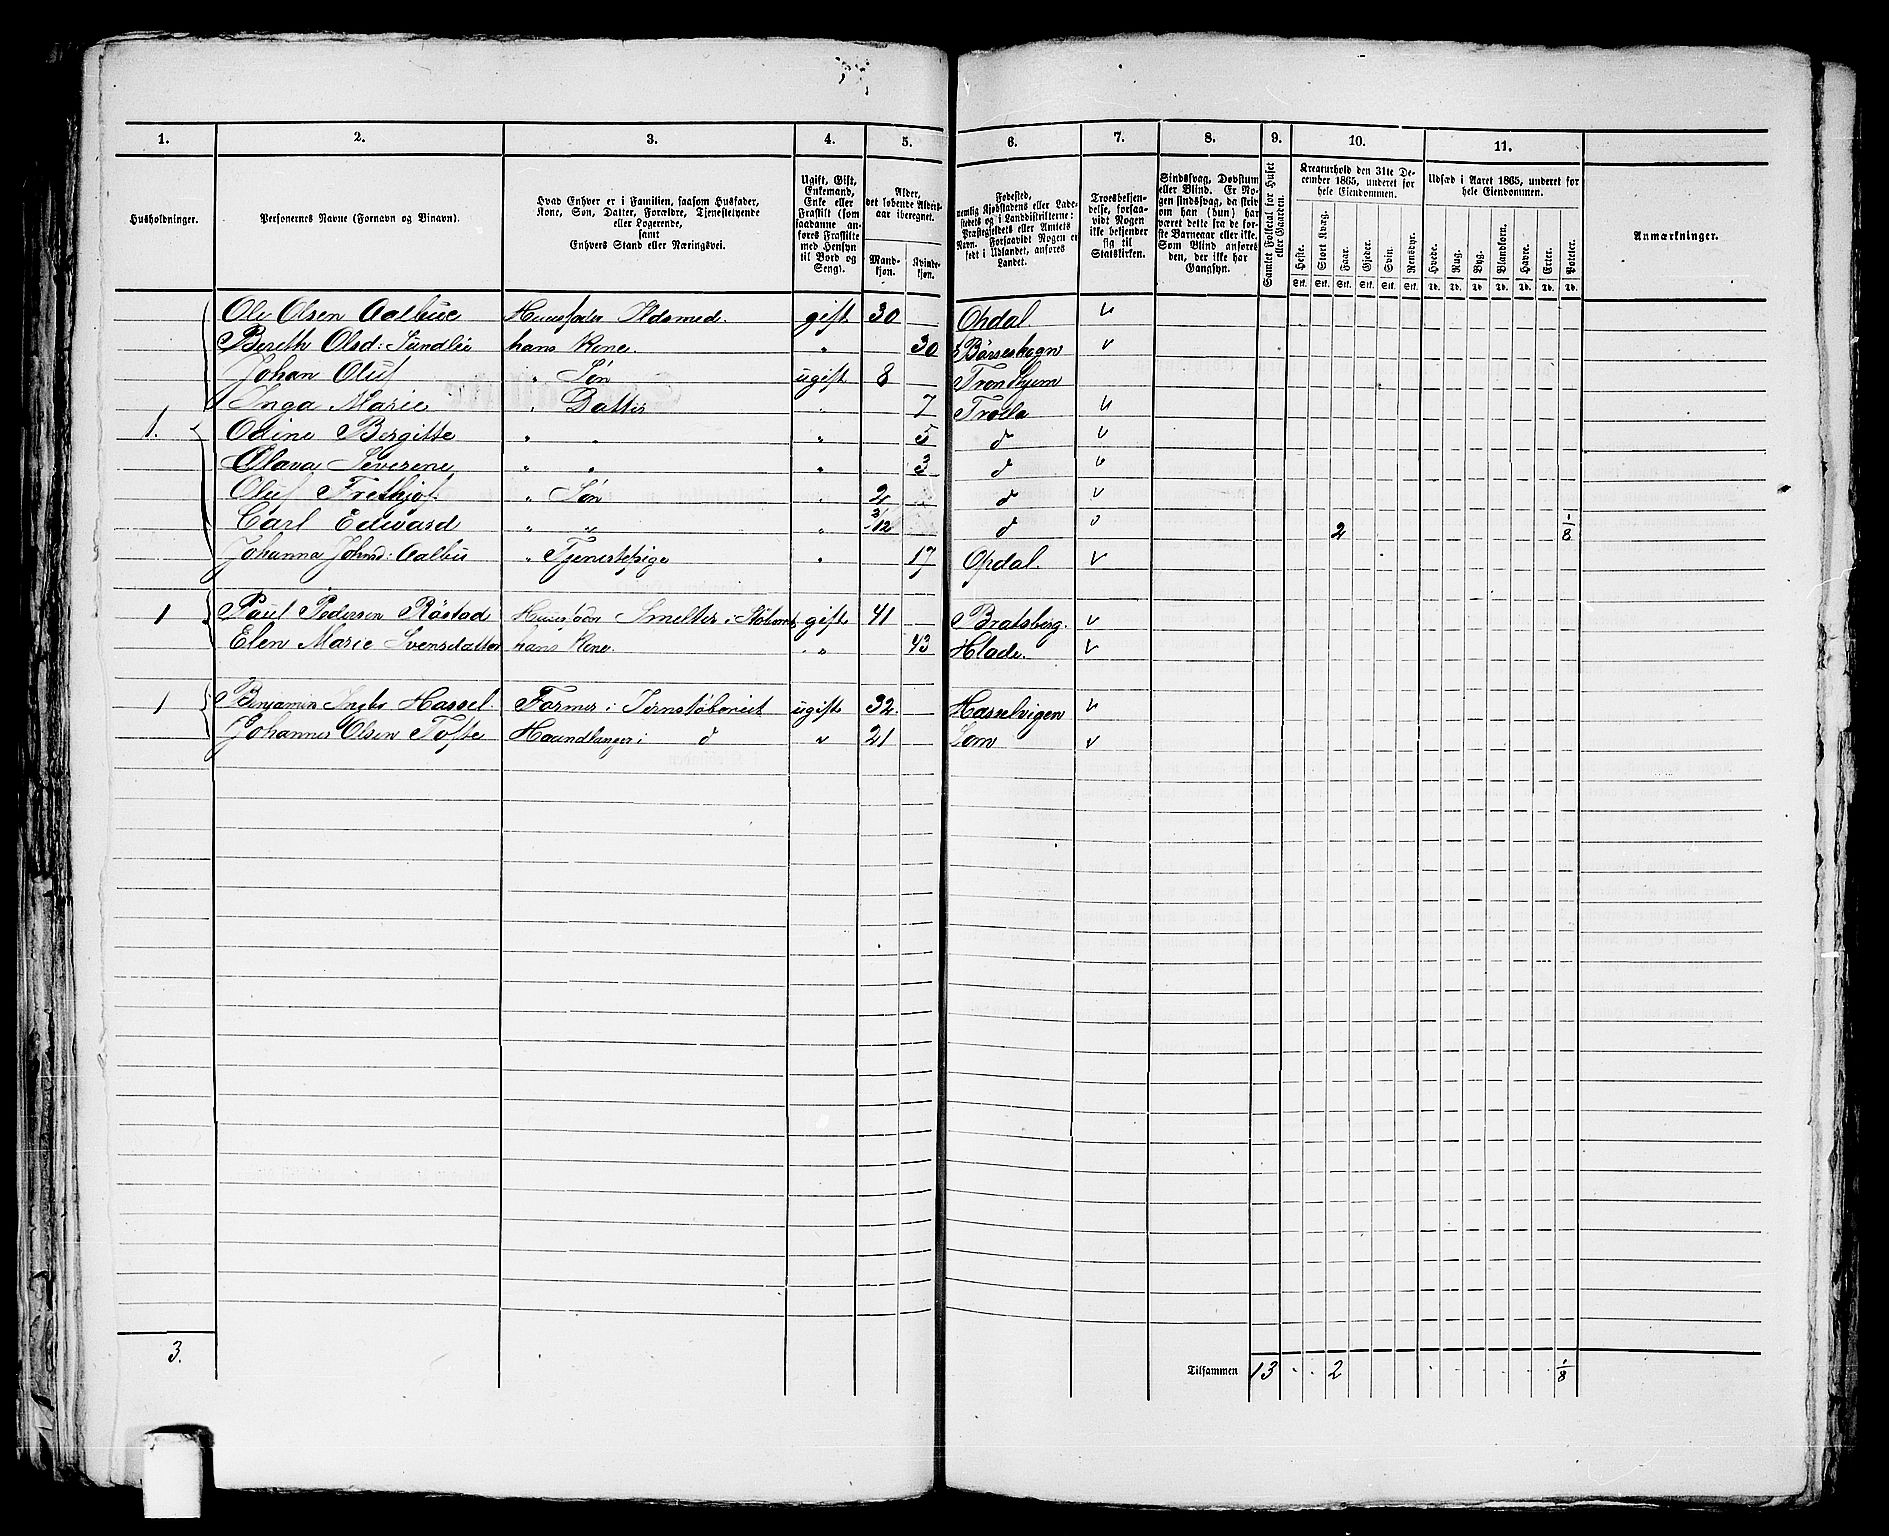 1. 2. 3. 4. 5. 6. 7. 8. 9. 10. 11.
Husholdninger.
Personernes Navne (Fornavn og Binavn).
Hvad Enhver er i Familien, saasom Husfader,
Kone, Søn, Datter, Forældre, Tjenestetyende
eller Logerende,
samt
Enhvers Stand eller Næringsvei.
Ugift, Gift,
Enkemand,
Enke eller
Fraskilt (som
saadanne an-
føres Fraskilte
med Hensyn
til Bord og
Seng).
Alder,
det løbende Alders-
aar iberegnet.
Mand-
kjøn.
Kvinde-
kjøn.
Fødested,
nemlig Kjøbstadens eller Lade-
stedets og i Landdistrikterne:
Præstegjeldets eller Amtets
Navn. Forsaavidt Nogen er
født i Udlandet, anføres
Landet.
Troesbekjen-
delse, forsaa-
vidt Nogen
ikke bekjender
sig til
Statskirken.
Sindssvag, Døvstum
eller Blind. Er No-
gen sindssvag, da skriv
om han (hun) har
været dette fra de før-
ste Barneaar eller ikke.
Som Blind anføres
den, der ikke har
Gangsyn.
Samlet Folketal for Huset
eller Gaarden.
Kreaturhold den 31te De-
cember 1865, underet for
hele Eiendommen.
Heste. Stort Kvæg. Faar. Gjeder. Svin. Rensdyr.
Stk. Stk. Stk. Stk. Stk. Stk.
Udsæd i Aaret 1865, underet for
hele Eiendommen.
Hvede. Rug. Byg. Blandkorn. Havre. Erter. Poteter.
Td. Td. Td. Td. Td. Td. Td.
Anmærkninger.
Ole Olsen Aalbue Huusfader Ildsmed. gift 30 Opdal
Bereth Olsd: hans Kone. " 30 Børseskogn
Johan Oluf " Søn ugift 8 Trondhjem
Inga Marie " Datter " 7
1. Odine Bergitte " " " 5 d
Olava Severene " " " 3 d
Oluf Frethjof " Søn " 2 d
Carl Edward " " " 3/12 d 2 1/8
Johanna Johnsd: Aalbu " Tjenestepige " 17 Opdal.
1 Paul Pedersen Røstad Huusfader Smelter i gift 41 Bratsberg.
Elen Marie Svensdatter hans Kone. " 43 Hlade.
1 Benjamin Hassel. Former i Jernstøberiet ugift 32. Hasselvigen
Johannes Olsen Tofte Haandlanger i d " 21 Lom
3.
Tilsammen 13 2 1/8